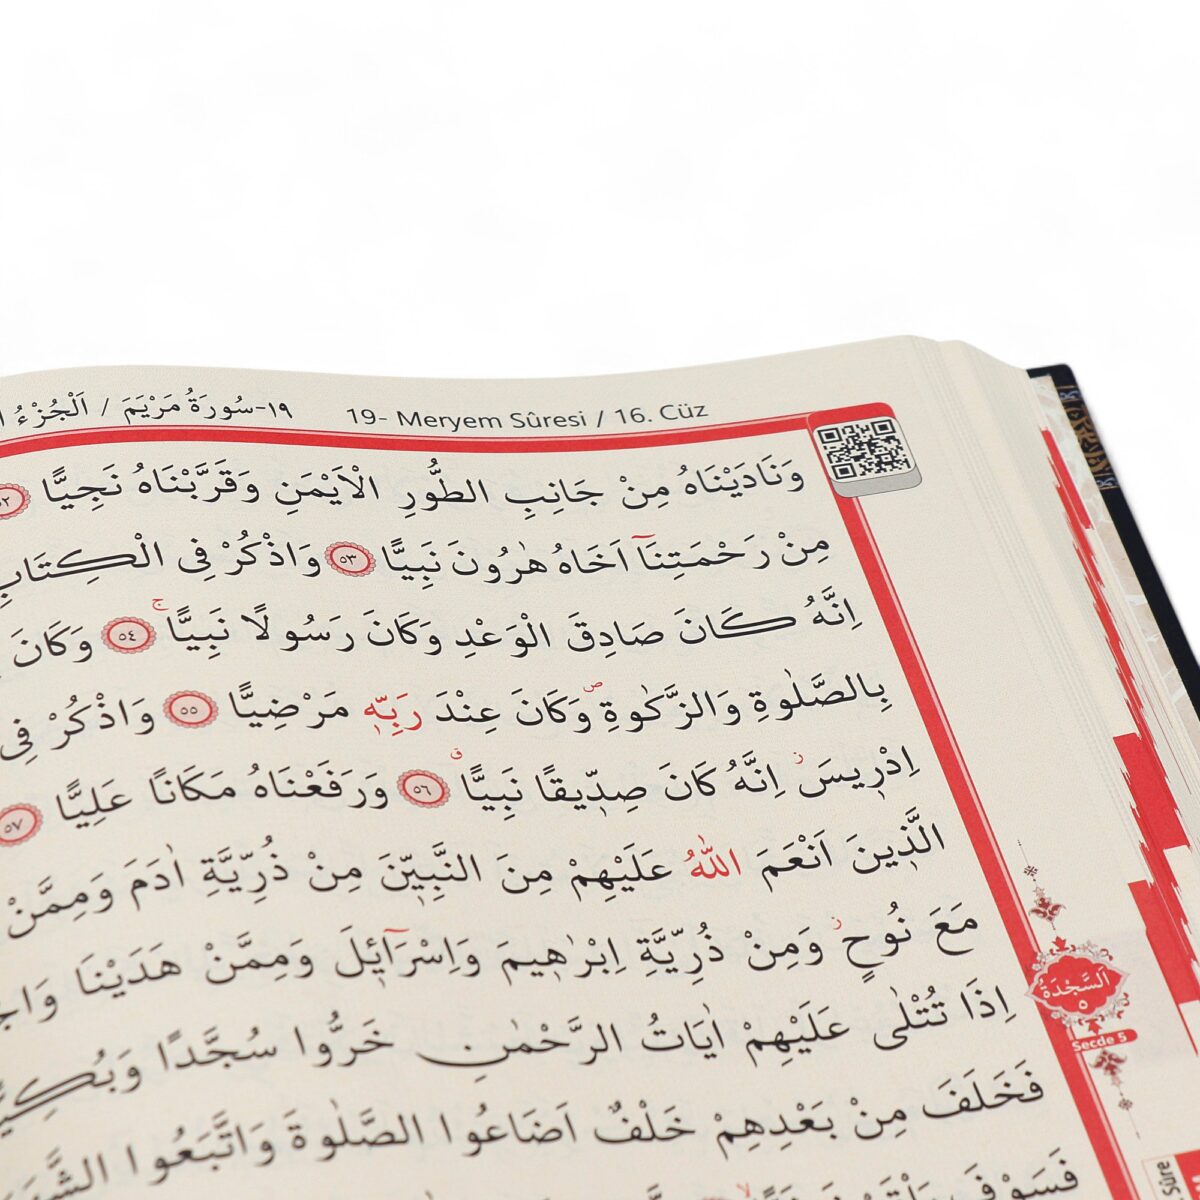 ١٩-سُورَةُ مَرْيَمَ / اَلْجُزْءُ
19- Meryem Sûresi / 16. Cüz
وَنَادَيْنَاهُ مِنْ جَانِبِ الطُّورِ الْاَيْمَنِ وَقَرَّبْنَاهُ نَجِيًّا ٥٢
مِنْ رَحْمَتِنَٓا اَخَاهُ هٰرُونَ نَبِيًّا ٥٣ وَاذْكُرْ فِى الْكِتَابِ
اِنَّهُ كَانَ صَادِقَ الْوَعْدِ وَكَانَ رَسُولًا نَبِيًّاۚ ٥٤ وَكَانَ
بِالصَّلٰوةِ وَالزَّكٰوةِۖ وَكَانَ عِنْدَ رَبِّه۪ مَرْضِيًّا ٥٥ وَاذْكُرْ فِى
اِدْر۪يسَۘ اِنَّهُ كَانَ صِدّ۪يقًا نَبِيًّاۗ ٥٦ وَرَفَعْنَاهُ مَكَانًا عَلِيًّا ٥٧
الَّذ۪ينَ اَنْعَمَ اللّٰهُ عَلَيْهِمْ مِنَ النَّبِيّ۪نَ مِنْ ذُرِّيَّةِ اٰدَمَ وَمِمَّنْ
مَعَ نُوحٍۘ وَمِنْ ذُرِّيَّةِ اِبْرٰه۪يمَ وَاِسْرَٓائ۪لَ وَمِمَّنْ هَدَيْنَا
اِذَا تُتْلٰى عَلَيْهِمْ اٰيَاتُ الرَّحْمٰنِ خَرُّوا سُجَّدًا
فَخَلَفَ مِنْ بَعْدِهِمْ خَلْفٌ اَضَاعُوا الصَّلٰوةَ وَاتَّبَعُوا
فَسَوْفَ
اَلسَّجْدَةُ
٥
Secde 5
Sûre